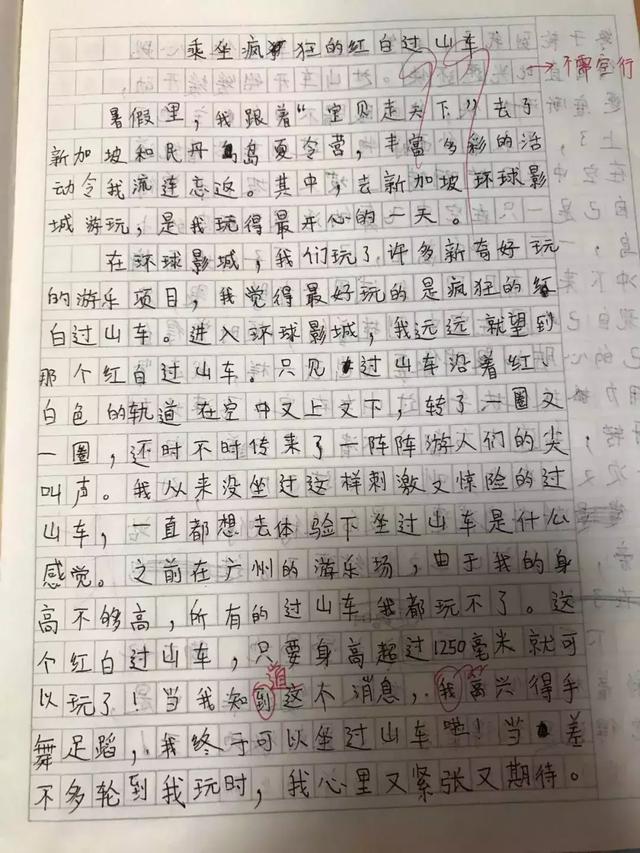 乘坐疯狂的红白过山车
不需空行
暑假里，我跟着“宝贝走天下”去了
新加坡和民丹岛夏令营，丰富多彩的活
动令我流连忘返。其中，去新加坡环球影
城游玩，是我玩得最开心的一天。
在环球影城，我们玩了许多新奇好玩
的游乐项目，我觉得最好玩的是疯狂的红
白过山车。进入环球影城，我远远就望到
那个红白过山车。只见过山车沿着红、
白色的轨道在空中又上又下，转了一圈又
一圈，还时不时传来了一阵阵游人们的尖
叫声。我从来没坐过这样刺激又惊险的过
山车，一直都想去体验下坐过山车是什么
感觉。之前在广州的游乐场，由于我的身
高不够高，所有的过山车我都玩不了。这
个红白过山车，只要身高超过1250毫米就可
道
以玩了！当我知到这个消息，我高兴得手
舞足蹈，我终于可以坐过山车啦！当差
不多轮到我玩时，我心里又紧张又期待。